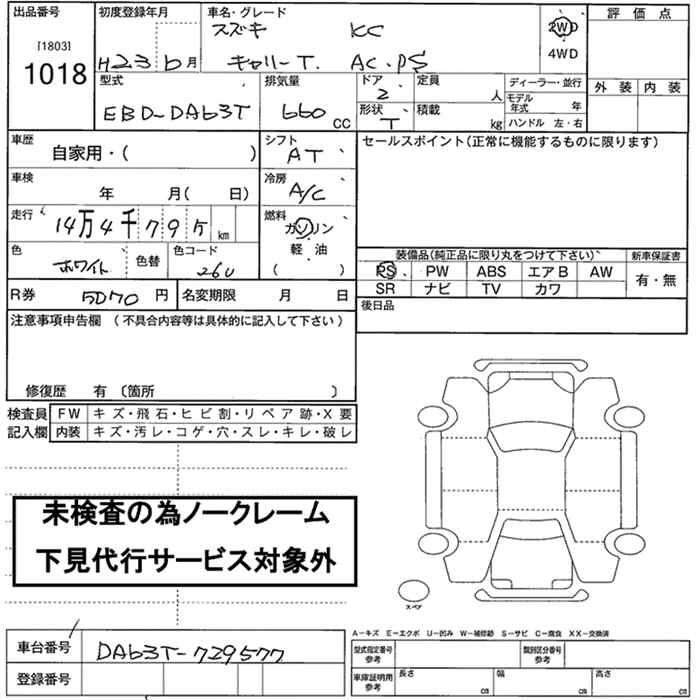 出品番号
[1803]
1018
初度登録年月
H23 6 月
車名・グレード
スズキ KC
キャリーT. AC.PS
2WD
4WD
評価点
外装 内装
型式
EBD-DA63T
排気量
660 CC
ドア
2
形状
T
定員
人
積載
kg
ディーラー・並行
モデル年式 年
ハンドル 左・右
車歴
自家用・( )
シフト
AT
セールスポイント(正常に機能するものに限ります)
車検
年 月( 日)
冷房
A/C
走行
14万4千795 km
燃料
ガソリン
軽・油
( )
色
ホワイト
色替
色コード
26U
装備品(純正品に限り丸をつけて下さい)
新車保証書
PS PW ABS エアB AW
SR ナビ TV カワ
有・無
R券
5070 円
名変期限 月 日
後日品
注意事項申告欄 (不具合内容等は具体的に記入して下さい)
修復歴 有 〔箇所 〕
検査員
記入欄
FW キズ・飛石・ヒビ割・リペア跡・X要
内装 キズ・汚レ・コゲ・穴・スレ・キレ・破レ
未検査の為ノークレーム
下見代行サービス対象外
スペア
A-キズ E-エクボ U-凹み W-補修跡 S-サビ C-腐食 XX-交換済
車台番号
DA63T-729577
登録番号
型式指定番号
参考
類別区分番号
参考
車庫証明用
参考
長さ cm
幅 cm
高さ cm